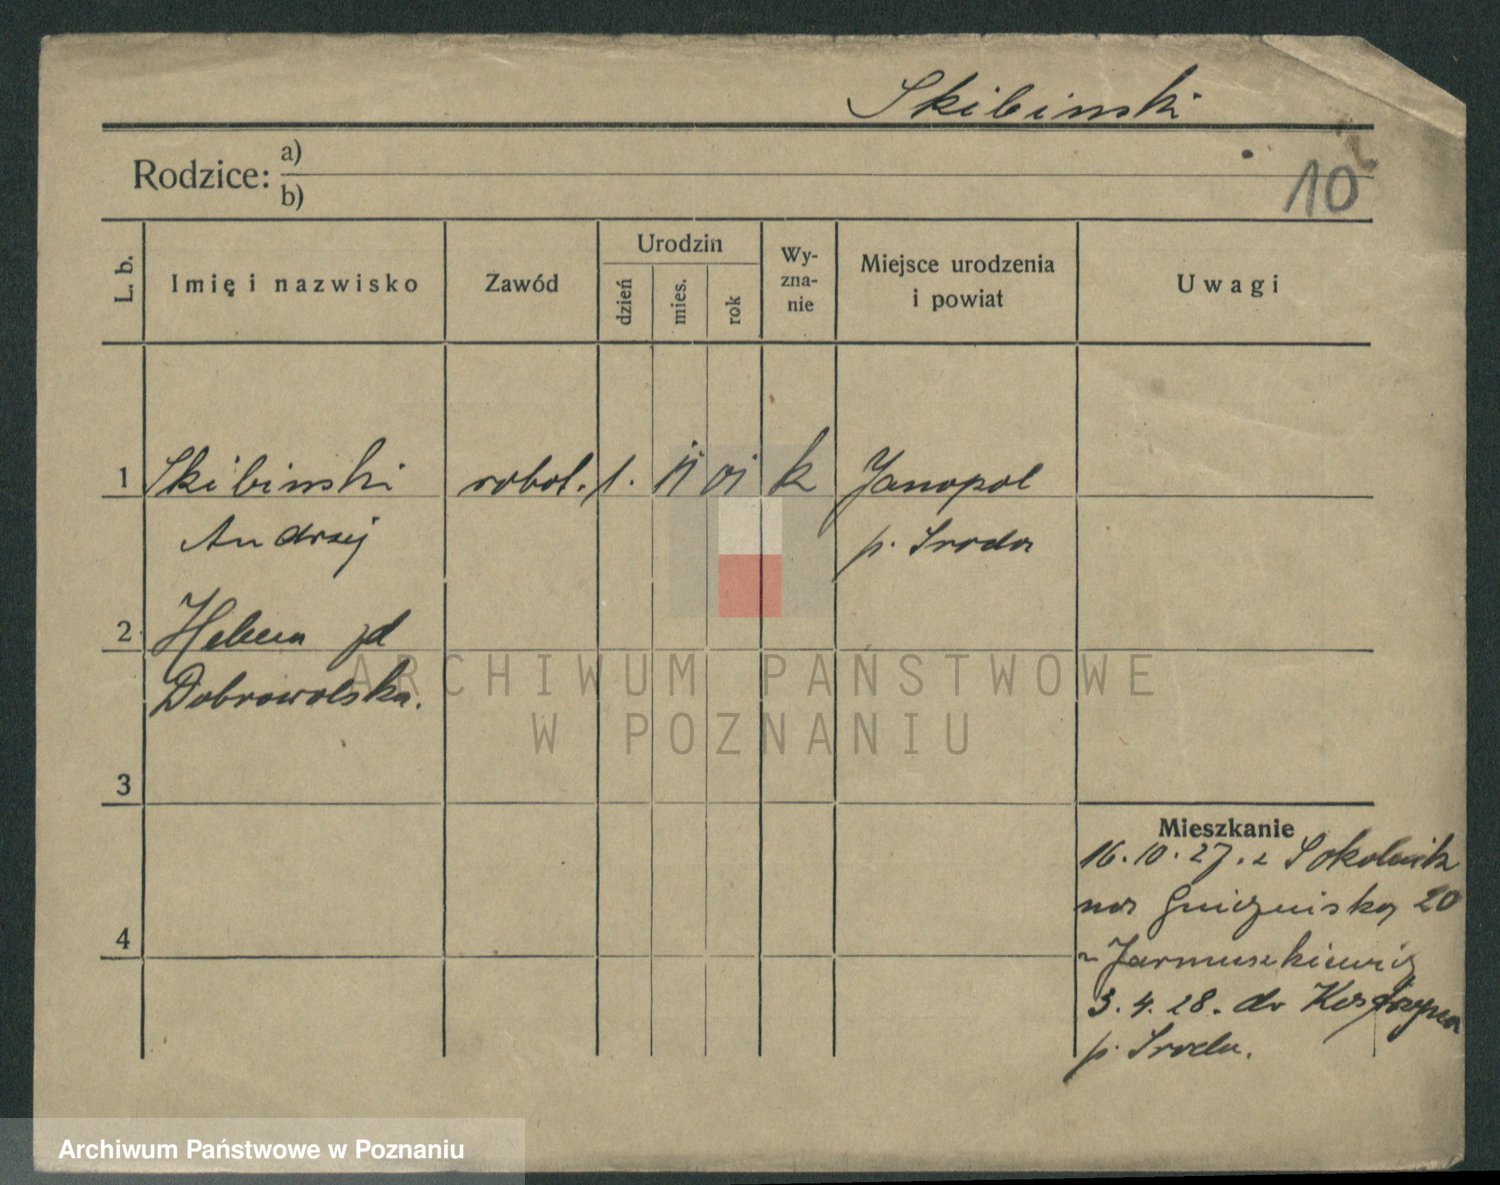 Skibinski
Rodzice: a)
b)
10
L. b.
Imię i nazwisko
Zawód
Urodzin
dzień
mies.
rok
Wy-
zna-
nie
Miejsce urodzenia
i powiat
Uwagi
1 Skibinski robot. 1. II 01 k Janopol
Andrzej p. Sroda
2 Helena zd
Dobrowolska.
3
4
Mieszkanie
16.10.27. z Sokolnik
na Gniezniska 20
Jarmuszkiewicz
3.4.28. do Kostrzyna
p. Sroda.
ARCHIWUM PAŃSTWOWE
W POZNANIU
Archiwum Państwowe w Poznaniu